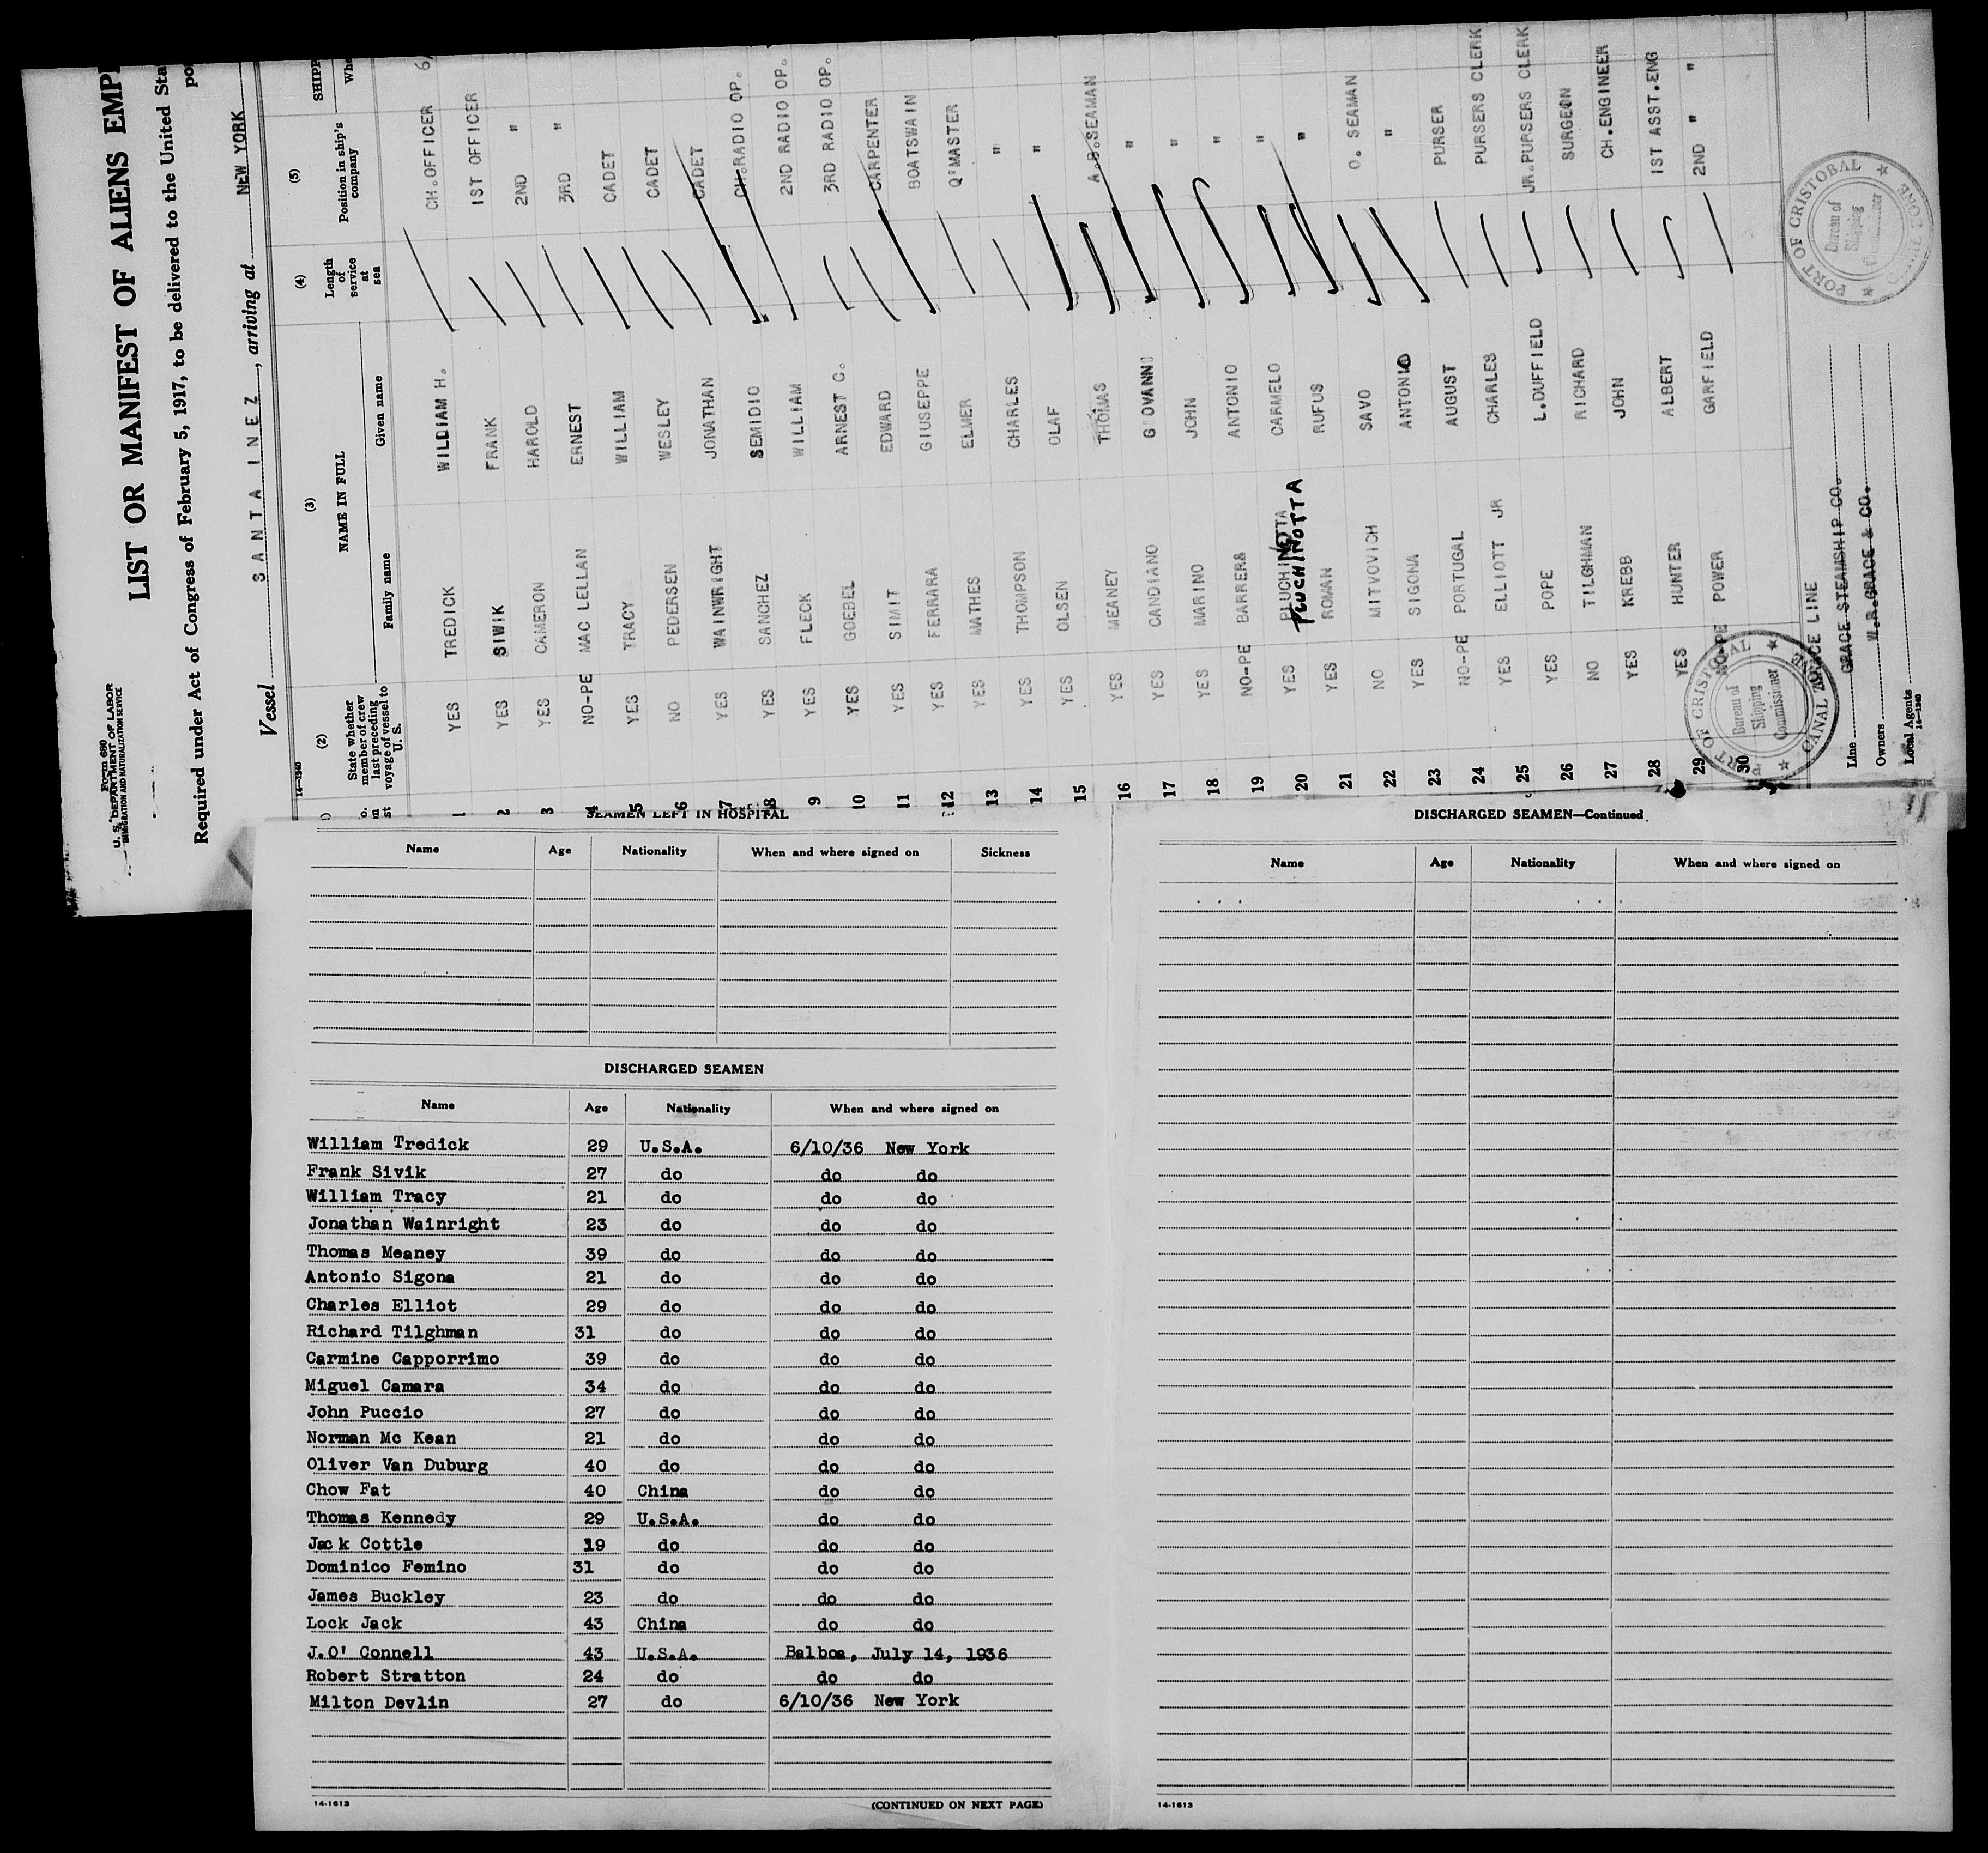 Form 680
U. S. DEPARTMENT OF LABOR
IMMIGRATION AND NATURALIZATION SERVICE
LIST OR MANIFEST OF ALIENS EMP
Required under Act of Congress of February 5, 1917, to be delivered to the United Sta
po
Vessel SANTA INEZ, arriving at NEW YORK
14—1240
(2) (3) (4) (5)
State whether member of crew last preceding voyage of vessel to U. S. NAME IN FULL Length of service at sea Position in ship's company SHIPP
Family name Given name Whe
1 YES TREDICK WILLIAM H. CH.OFFICER 6/
2 YES SIWIK FRANK 1ST OFFICER
3 YES CAMERON HAROLD 2ND "
4 NO-PE MAC LELLAN ERNEST 3RD "
5 YES TRACY WILLIAM CADET
6 NO PEDERSEN WESLEY CADET
7 YES WAINWRIGHT JONATHAN CADET
8 YES SANCHEZ SEMIDIO CH.RADIO OP.
9 YES FLECK WILLIAM 2ND RADIO OP.
10 YES GOEBEL ARNEST C. 3RD RADIO OP.
11 YES SIMIT EDWARD CARPENTER
12 YES FERRARA GIUSEPPE BOATSWAIN
13 YES MATHES ELMER Q'MASTER
14 YES THOMPSON CHARLES "
15 YES OLSEN OLAF "
16 YES MEANEY THOMAS A.B.SEAMAN
17 YES CANDIANO GIOVANNI "
18 YES MARINO JOHN "
19 NO-PE BARRERA ANTONIO "
20 YES PLUCHINOTTA CARMELO "
PLUCHINOTTA
21 YES ROMAN RUFUS "
22 NO MITVOVICH SAVO O. SEAMAN
23 YES SIGONA ANTONIO "
24 NO-PE PORTUGAL AUGUST PURSER
25 YES ELLIOTT JR CHARLES PURSERS CLERK
26 YES POPE L.DUFFIELD JR.PURSERS CLERK
27 NO TILGHMAN RICHARD SURGEON
28 YES KREBB JOHN CH.ENGINEER
29 YES HUNTER ALBERT 1ST ASST.ENG
30 NO-PE POWER GARFIELD 2ND " "
PORT OF CRISTOBAL
Bureau of
Shipping
Commissioner
CANAL ZONE
PORT OF CRISTOBAL
Bureau of
Shipping
Commissioner
CANAL ZONE
Line GRACE LINE
Owners GRACE STEAMSHIP CO.
Local Agents W.R.GRACE & CO.
14—1240
SEAMEN LEFT IN HOSPITAL
Name Age Nationality When and where signed on Sickness
DISCHARGED SEAMEN
Name Age Nationality When and where signed on
William Tredick 29 U.S.A. 6/10/36 New York
Frank Sivik 27 do do do
William Tracy 21 do do do
Jonathan Wainright 23 do do do
Thomas Meaney 39 do do do
Antonio Sigona 21 do do do
Charles Elliot 29 do do do
Richard Tilghman 31 do do do
Carmine Capporrimo 39 do do do
Miguel Camara 34 do do do
John Puccio 27 do do do
Norman Mc Kean 21 do do do
Oliver Van Duburg 40 do do do
Chow Fat 40 China do do
Thomas Kennedy 29 U.S.A. do do
Jack Cottle 19 do do do
Dominico Femino 31 do do do
James Buckley 23 do do do
Lock Jack 43 China do do
J.O' Connell 43 U.S.A. Balboa, July 14, 1936
Robert Stratton 24 do do do
Milton Devlin 27 do 6/10/36 New York
14-1613 (CONTINUED ON NEXT PAGE)
DISCHARGED SEAMEN—Continued
Name Age Nationality When and where signed on
14-1613